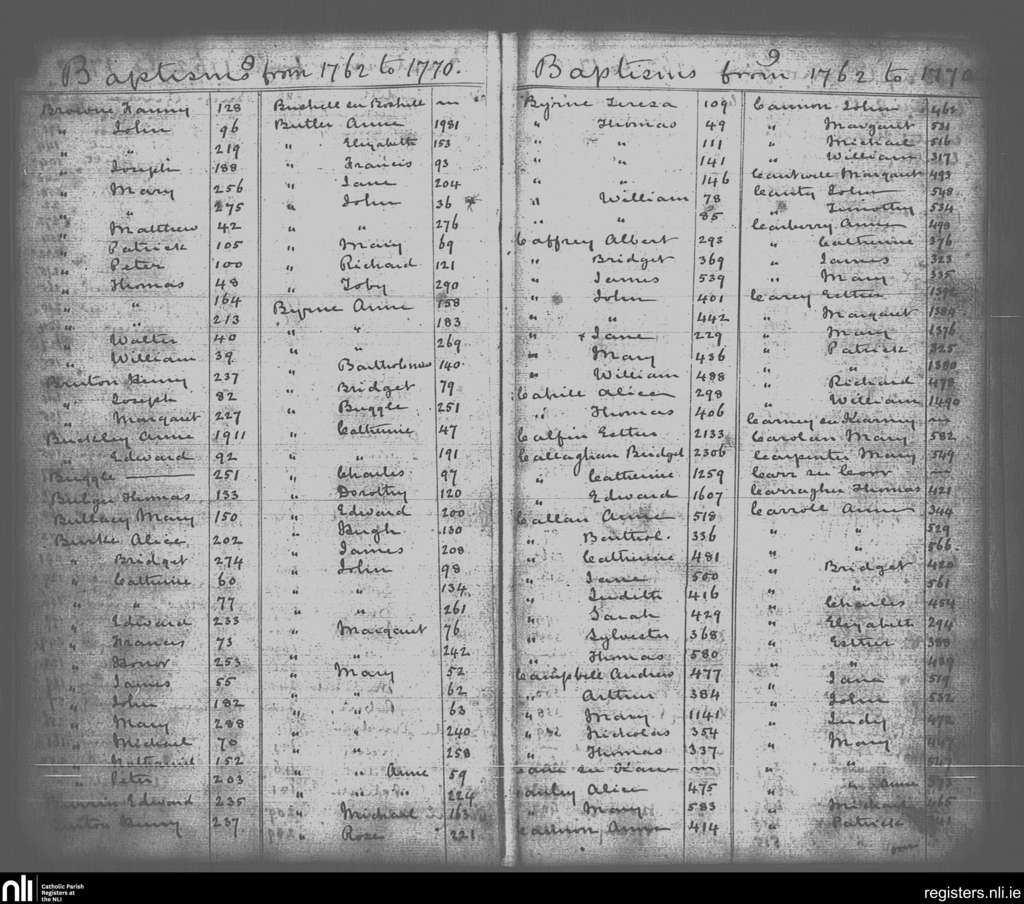 8
Baptisms from 1762 to 1770.
Browne Fanny 128
" John 96
" " 219
" Joseph 188
" Mary 256
" " 275
" Matthew 42
" Patrick 105
" Peter 100
" Thomas 48
" " 164
" " 213
" Walter 40
" William 39
Bruton Henry 237
" Joseph 82
" Margaret 227
Buckley Anne 1911
" Edward 92
Buggle — 251
Bulger Thomas 133
Mary 150
Burke Alice 202
" Bridget 274
" Catherine 60
" " 77
" Edward 233
" Francis 73
" Honor 253
" James 55
" John 182
" Mary 288
" Michael 70
" Nathaniel 152
" Peter 203
Edward 235
Henry 237
Bushell en Boshell
Butler Anne 1981
" Elizabeth 153
" Francis 93
" Jane 204
" John 36
" " 276
" Mary 69
" Richard 121
" Toby 290
Byrne Anne 158
" " 183
" " 269
" Bartholomew 140
" Bridget 79
" Buggle 251
" Catherine 47
" " 191
" Charles 97
" Dorothy 120
" Edward 200
" Hugh 130
" James 208
" John 98
" " 134
" " 261
" Margaret 76
" " 242
" Mary 52
" " 62
" " 63
" " 240
" " 258
" " Anne 59
" " " 224
" Michael 163
" Rose 221
9
Baptisms from 1762 to 1770
Byrne Teresa 109
" Thomas 49
" " 111
" " 141
" " 146
" William 78
" " 85
Caffrey Albert 293
" Bridget 369
" James 539
" John 401
" " 442
" + Jane 229
" Mary 436
" William 488
Cahill Alice 298
" Thomas 406
Calfin Esther 2133
Callaghan Bridget 2306
" Catherine 1259
" Edward 1607
Callan Anne 518
" Barthol. 336
" Catherine 481
" Jane 500
" Judith 416
" Sarah 429
" Sylvester 368
" Thomas 580
Campbell Andrew 477
" Arthur 384
" Mary 1141
" Nicholas 354
" Thomas 337
Alice 475
" Mary 583
Cannon Anne 414
Cannon John 463
" Margaret 531
" Michael 516
" William 317
Cantwell Margaret 493
Canty John 548
" Timothy 534
Carberry Anne 498
" Catherine 376
" James 323
" Mary 335
Carey Esther
" Margaret 1384
" Mary 1376
" Patrick 325
" " 1380
" Richard 478
" William 1490
Carney en Kearney
Carolan Mary 582
Carpenter Mary 549
Carr en Corr
Carragher Thomas 421
Carroll Anne 344
" " 529
" " 566
" Bridget 420
" " 561
" Charles 454
" Elizabeth 294
" Esther 388
" " 439
" Jane 519
" John 532
" Judy 472
" Mary
" "
" " Anne
" Michael 465
" Patrick
over
nli Catholic Parish
Registers at
the NLI
registers.nli.ie